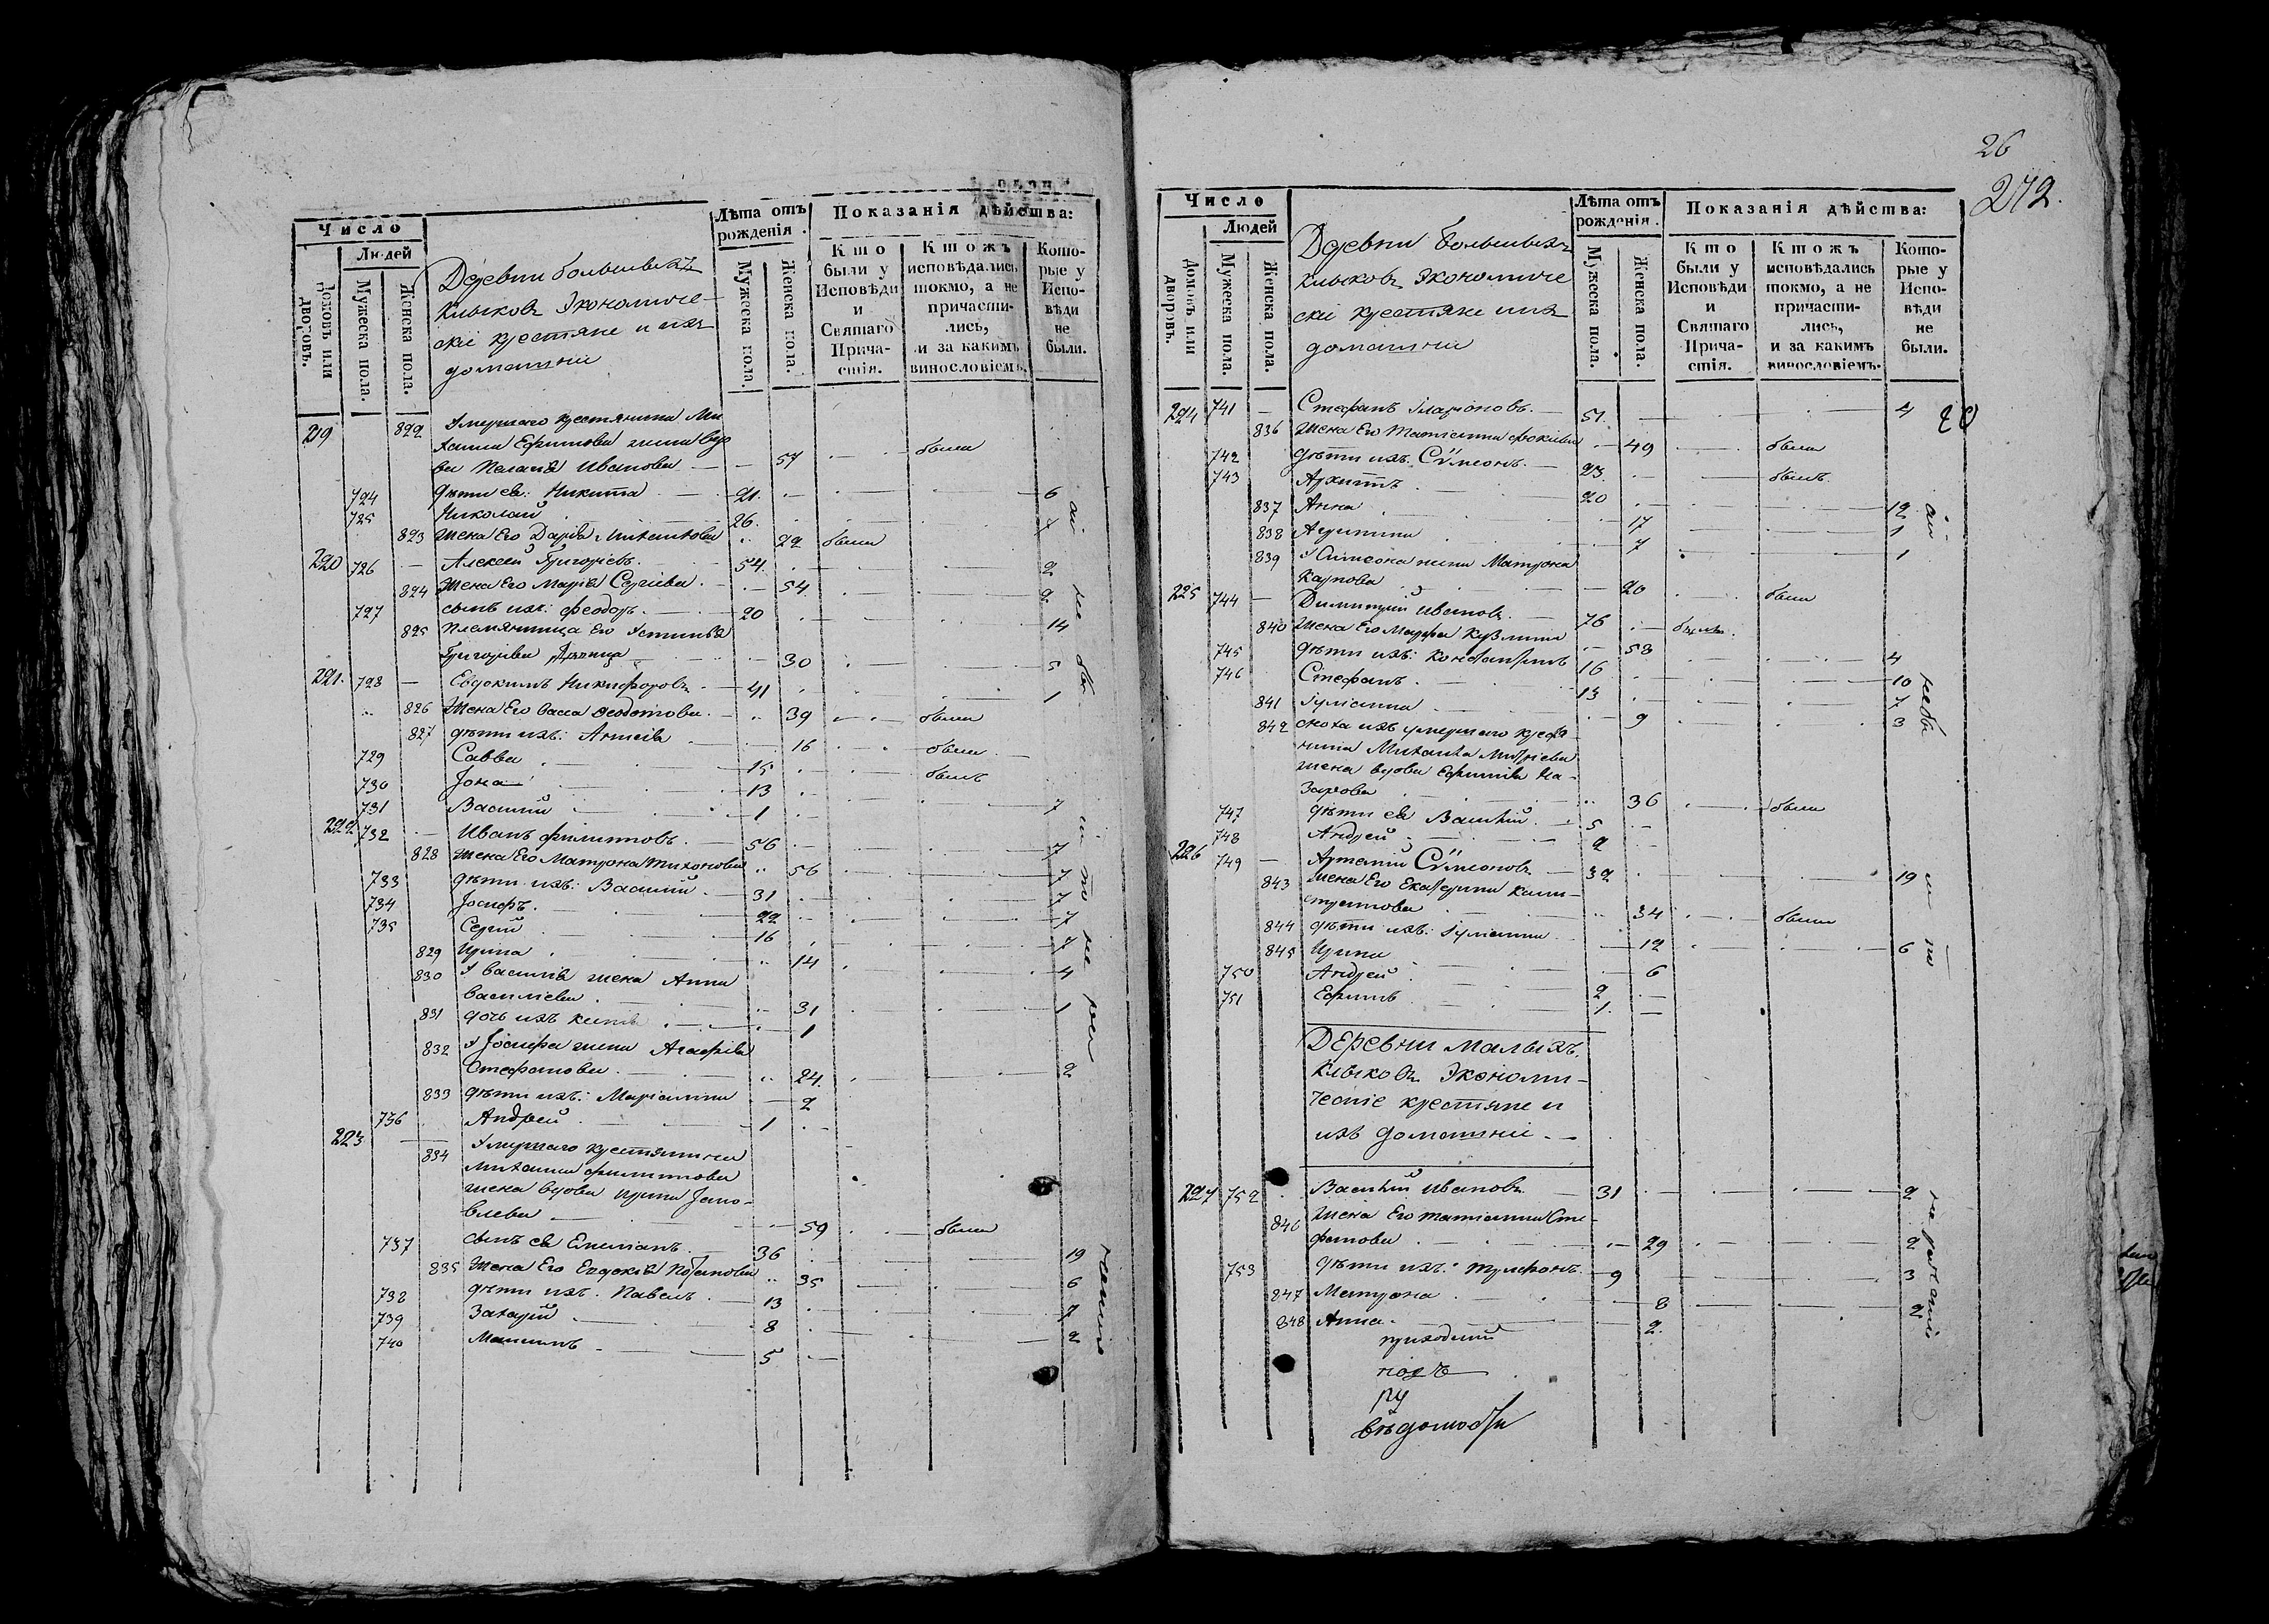 Число
Людей
Домовъ или дворовъ.
Мужеска пола.
Женска пола.
Деревни большихъ
Клыковъ Экономиче-
скіе крестяне и ихъ
домашніи
Лѣта отъ рожденія.
Мужеска пола.
Женска пола.
Показанія дѣйства:
Кто были у Исповѣди и Святаго Причастія.
Ктожъ исповѣдались токмо, а не причастились, и за какимъ винословіемъ.
Которые у Исповѣди не были.
219 822 Умершаго крестянина Ми
хаила Ефимова жена вдо
ва Пелагія Иванова — — 57 была
724 дѣти ея: Никита 21. 6
725 Николай 26. 7
823 Жена Его Дарія Михаилова 22 была
220 726 — Алексей Григорієвъ. 54. 2
824 Жена Его Марія Сергіева. 54 2
727 сынъ ихъ: Феодоръ. 20 14
825 Племянница Его Устинія
Григоріева 30 5
221. 728 — Евдокимъ Никифоровъ. 41 1
826 Жена Его Васса Федотова. 39 была
827 дѣти ихъ: 16 была
729 Савва 15
730 Іона 13 былъ
731 Василій 1 7
222 732 — Иванъ Филиповъ. 56 7
828 Жена Его Матрона Тихонова 56 7
733 дѣти ихъ: Василій 31 7
734 Іосифъ. 22 7
735 Сергій 16 7
829 Ирина 14 4
830 У Василія жена Анна
Василіева 31 1
831 дочь ихъ 1
832 У Іосифа жена Агафія
Стефанова 24. 2
833 дѣти ихъ: Маріамна 2
736 Андрей 1
223 834 Умершаго крестянина
Михаила Филипова
жена вдова Ирина Іако-
влева 59 была
737 сынъ ея Емеліанъ. 36 19
835 Жена Его Евдокія 35 6
738 дѣти ихъ. Павелъ. 13 7
739 Захарій 8 2
740 Максимъ 5
26
272.
Число
Людей
Домовъ или дворовъ.
Мужеска пола.
Женска пола.
Деревни большихъ
Клыковъ Экономиче
скіе крестяне и ихъ
домашніи
Лѣта отъ рожденія.
Мужеска пола.
Женска пола.
Показанія дѣйства:
Кто были у Исповѣди и Святаго Причастія.
Ктожъ исповѣдались токмо, а не причастились, и за какимъ винословіемъ.
Которые у Исповѣди не были.
224 741 — Стефанъ Иларіоновъ. 51. 4
836 Жена Его Татіанна Фокіева 49 была
742 дѣти ихъ. Сѵмеонъ. 23. былъ
743 Архиппъ 20 12
837 Анна 17 1
838 Агриппина 7 1
839 У Симеона жена Матрона
Карпова 20 была
225 744 — Димитрій Ивановъ. 76 былъ.
840 Жена Его Марфа Кузмина 53 4
745 дѣти ихъ: Константинъ 16 10
746 Стефанъ. 13 7
841 Іуліанна 9 3
842 сноха ихъ умершаго крестя
нина Михаила Митріева
жена вдова Ефимія На-
зарова 36 была
747 дѣти ея Василій 5
748 Андрей 2
226 749 — Артемій Сѵмеоновъ 32 19
843 Жена Его Екатерина Кали-
стратова 34 была
844 дѣти ихъ: Іуліанна 12 6
845 Ирина 6
750 Андрей 2
751 Ефимъ 1.
Деревни Малыхъ.
Клыковъ Экономи-
ческіе крестяне и
ихъ домашніе.
227 752 Василій Ивановъ 31 2
846 Жена Его Татіанна Сте-
фанова 29 2
753 дѣти ихъ: Трифонъ. 9 3
847 Матрона 8 2
848 Анна. 2.
вѣдомости